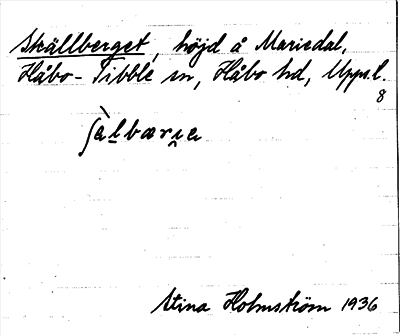 Skällberget, höjd å Mariedal,
Håbo-Tibble sn, Håbo hd, Upps.l.
8
ʃàl̠bærı̯a
Stina Holmström 1936